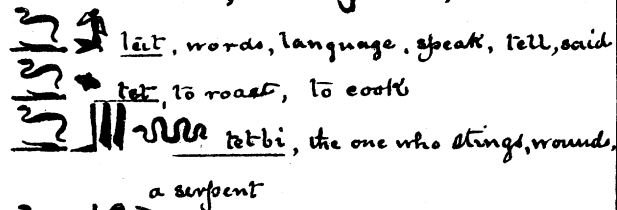 tet, words, language, speak, tell, said
tet, to roast, to cook
tetbi, the one who stings, wound,
a serpent